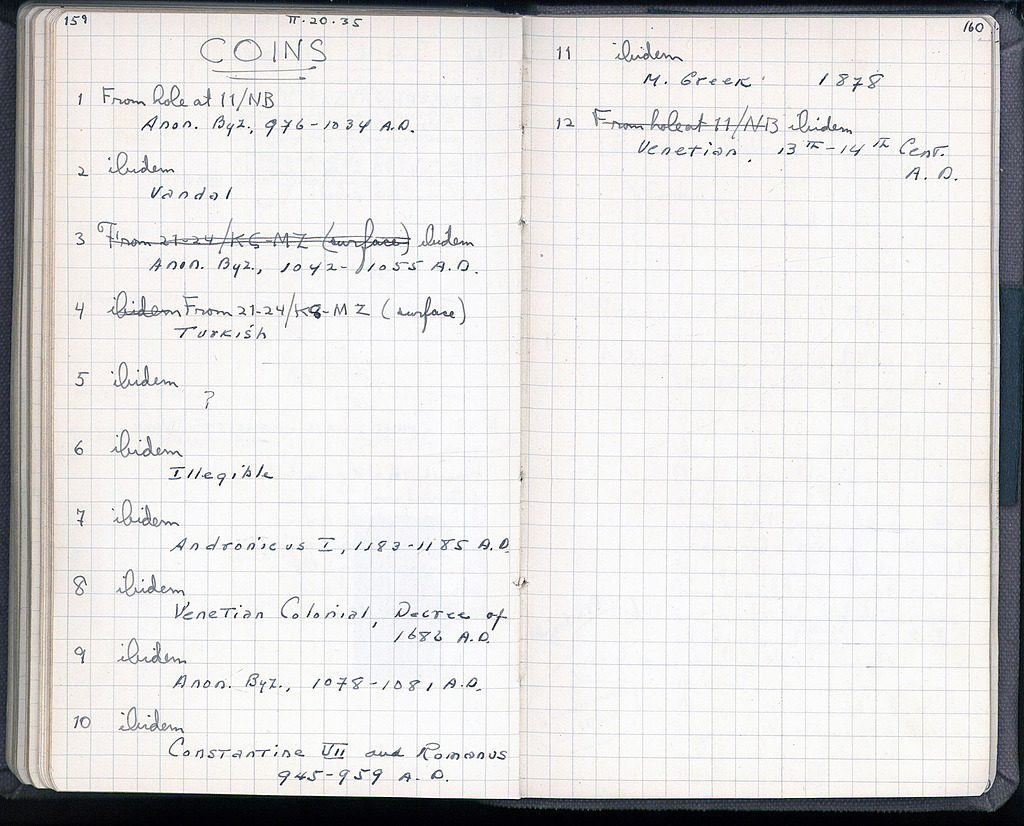 159
II.20.35
COINS
1 From hole at 11/NB
Anon. Byz., 976-1034 A.D.
2 ibidem
Vandal
3 From 21-24/KG-MZ (surface) ibidem
Anon. Byz., 1042-1055 A.D.
4 ibidem From 21-24/KG-MZ (surface)
Turkish
5 ibidem
?
6 ibidem
Illegible
7 ibidem
Andronicus I, 1183-1185 A.D.
8 ibidem
Venetian Colonial, Decree of
1686 A.D.
9 ibidem
Anon. Byz., 1078-1081 A.D.
10 ibidem
Constantine VII and Romanus
945-959 A.D.
160
11 ibidem
M. Greek 1878
12 From hole at 11/NB ibidem
Venetian. 13TH-14TH Cent.
A.D.